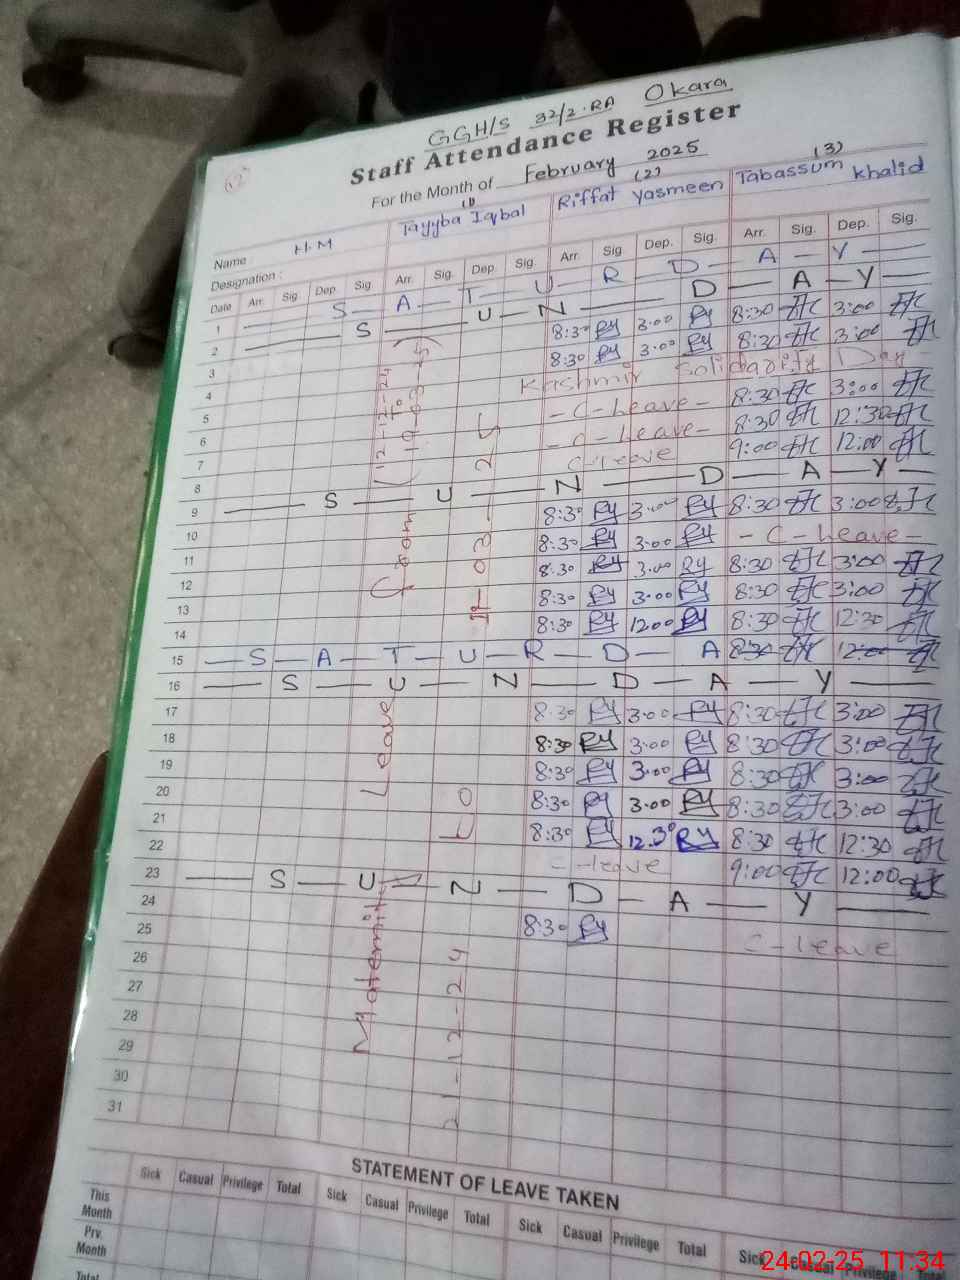 GGH/S 32/2.RA Okara
Staff Attendance Register
For the Month of February 2025
(1) (2) (3)
Name : H.M Tayyba Iqbal Riffat Yasmeen Tabassum khalid
Designation :
Date Arr. Sig. Dep. Sig. Arr. Sig. Dep. Sig. Arr. Sig. Dep. Sig. Arr. Sig. Dep. Sig.
1 S A T U R D A Y
2 S U N D A Y
3 8:30 RY 3.00 RY 8:30 3:00
4 8:30 RY 3.00 RY 8:30 3:00
5 Kashmir Solidarity Day
6 - C-Leave - 8:30 3:00
7 - C-Leave - 8:30 12:30
8 C-Leave 9:00 12:00
9 S U N D A Y
10 8:30 RY 3.00 RY 8:30 3:00
11 8:30 RY 3.00 RY - C-Leave -
12 8:30 RY 3.00 RY 8:30 3:00
13 8:30 RY 3.00 RY 8:30 3:00
14 8:30 RY 12.00 RY 8:30 12:30
15 S A T U R D A 8:30 12:00
16 S U N D A Y
17 8.30 RY 3.00 RY 8:30 3:00
18 8:30 RY 3.00 RY 8:30 3:00
19 8:30 RY 3.00 RY 8:30 3:00
20 8:30 RY 3.00 RY 8:30 3:00
21 8:30 RY 12.30 RY 8:30 12:30
22 C-leave 9:00 12:00
23 S U N D A Y
24 8:30 RY C-leave
25
26
27
28
29
30
31
Maternity Leave (From (12-12-24 To
21-12-24 to 03-25
STATEMENT OF LEAVE TAKEN
Sick Casual Privilege Total Sick Casual Privilege Total Sick Casual Privilege Total Sick Casual Privilege
This Month
Prv. Month
Total
24-02-25 11:34